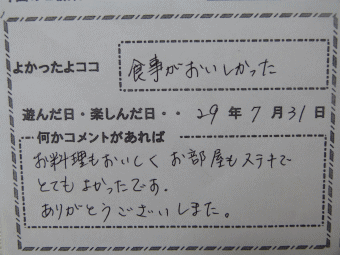 よかったよココ 食事がおいしかった
遊んだ日・楽しんだ日・・ 29 年 7 月 31 日
何かコメントがあれば
お料理もおいしく お部屋もステキで
とてもよかったです。
ありがとうございしました。